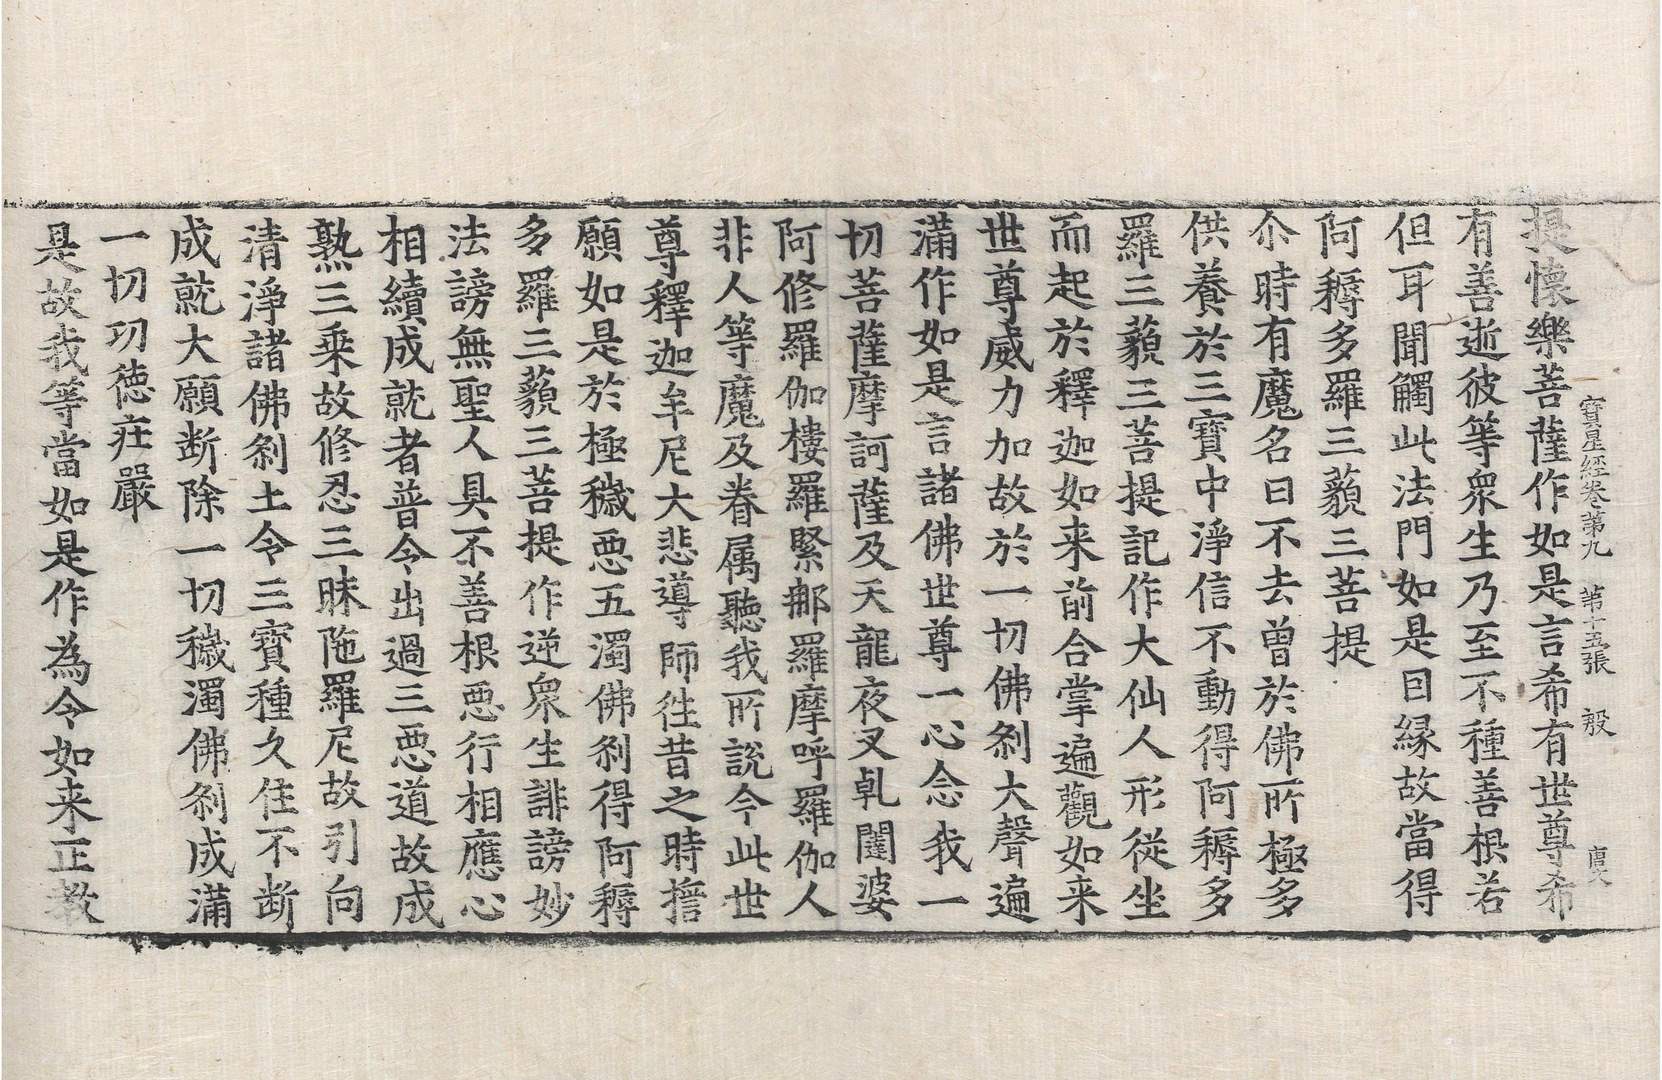 寶星經卷第九　第十五張　毀
提懷樂菩薩作如是言希有世尊希
有善逝彼等衆生乃至不種善根若
但耳聞觸此法門如是因縁故當得
阿耨多羅三藐三菩提
尒時有魔名曰不去曽於佛所極多
供養於三寶中淨信不動得阿耨多
羅三藐三菩提記作大仙人形從坐
而起於釋迦如来前合掌遍觀如来
世尊威力加故於一切佛刹大聲遍
滿作如是言諸佛世尊一心念我一
切菩薩摩訶薩及天龍夜叉乹闥婆
阿修羅伽樓羅緊那羅摩呼羅伽人
非人等魔及眷属聽我所說今此世
尊釋迦牟尼大悲導師往昔之時擔
願如是於極穢惡五濁佛刹得阿耨
多羅三藐三菩提作逆衆生誹謗妙
法謗無聖人具不善根惡行相應心
相續成就者普令出過三惡道故成
熟三乗故修忍三昧陁羅尼故引向
清淨諸佛刹土令三寶種久住不断
成就大願断除一切穢濁佛刹成滿
一切功徳庄嚴
是故我等當如是作為令如来正教